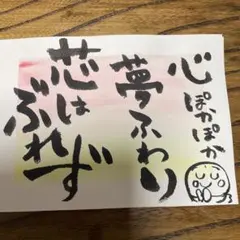 心ぽかぽか
夢ふわり
芯は
ぶれず